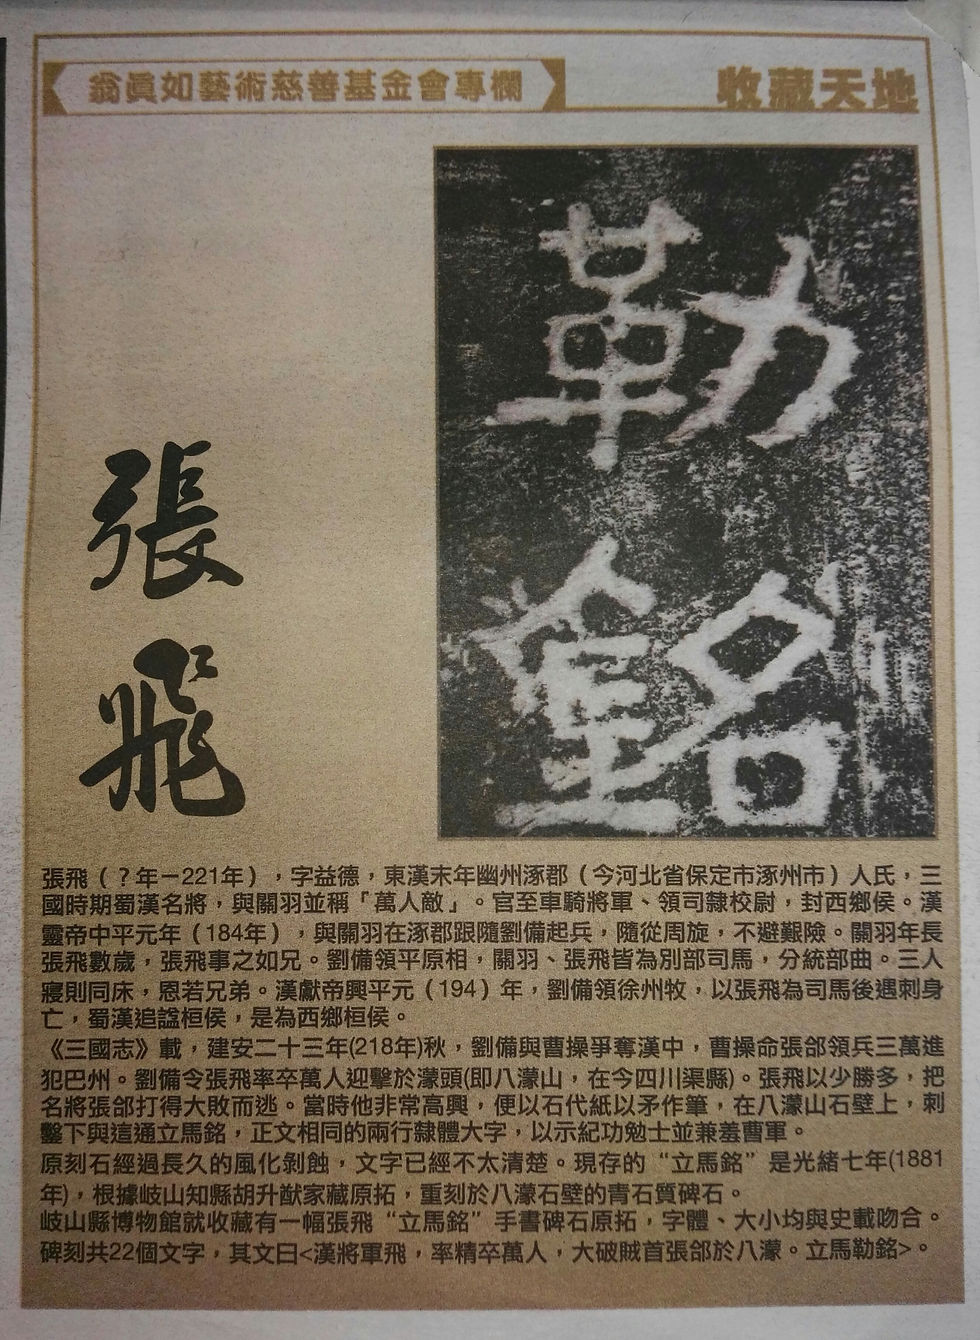 翁眞如藝術慈善基金會專欄
收藏天地
勒
銘
張
飛
張飛（？年－221年），字益德，東漢末年幽州涿郡（今河北省保定市涿州市）人氏，三
國時期蜀漢名將，與關羽並稱「萬人敵」。官至車騎將軍、領司隸校尉，封西鄉侯。漢
靈帝中平元年（184年），與關羽在涿郡跟隨劉備起兵，隨從周旋，不避艱險。關羽年長
張飛數歲，張飛事之如兄。劉備領平原相，關羽、張飛皆為別部司馬，分統部曲。三人
寢則同床，恩若兄弟。漢獻帝興平元（194）年，劉備領徐州牧，以張飛為司馬後遇刺身
亡，蜀漢追諡桓侯，是為西鄉桓侯。
《三國志》載，建安二十三年(218年)秋，劉備與曹操爭奪漢中，曹操命張郃領兵三萬進
犯巴州。劉備令張飛率卒萬人迎擊於濛頭(即八濛山，在今四川渠縣)。張飛以少勝多，把
名將張郃打得大敗而逃。當時他非常高興，便以石代紙以矛作筆，在八濛山石壁上，刺
鑿下與這通立馬銘，正文相同的兩行隸體大字，以示紀功勉士並兼羞曹軍。
原刻石經過長久的風化剝蝕，文字已經不太清楚。現存的“立馬銘”是光緒七年(1881
年)，根據岐山知縣胡升猷家藏原拓，重刻於八濛石壁的青石質碑石。
岐山縣博物館就收藏有一幅張飛“立馬銘”手書碑石原拓，字體、大小均與史載吻合。
碑刻共22個文字，其文曰<漢將軍飛，率精卒萬人，大破賊首張郃於八濛。立馬勒銘>。